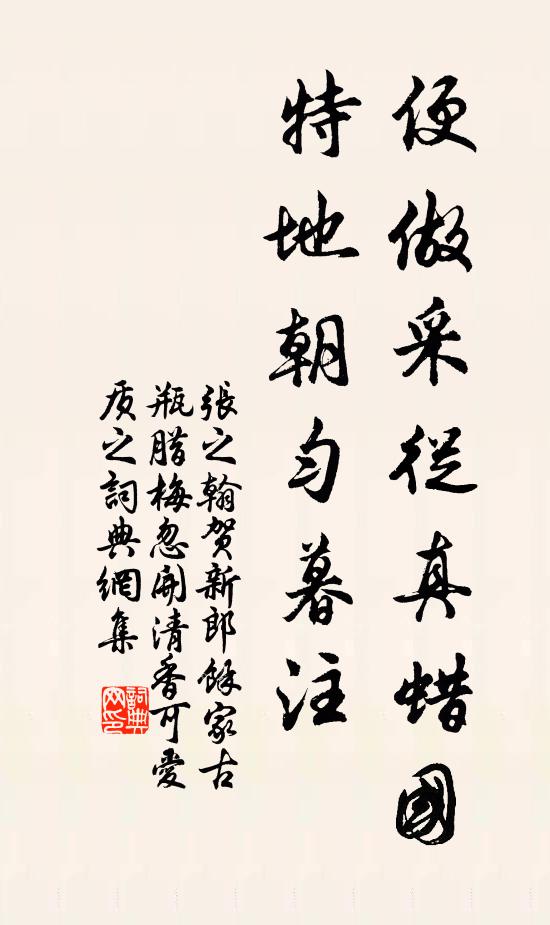 便做采從真蜡國
特地朝勻暮注
張之翰賀新郎餘家古
瓶腊梅忽開清香可愛
质之詞典網集
詞典
网印